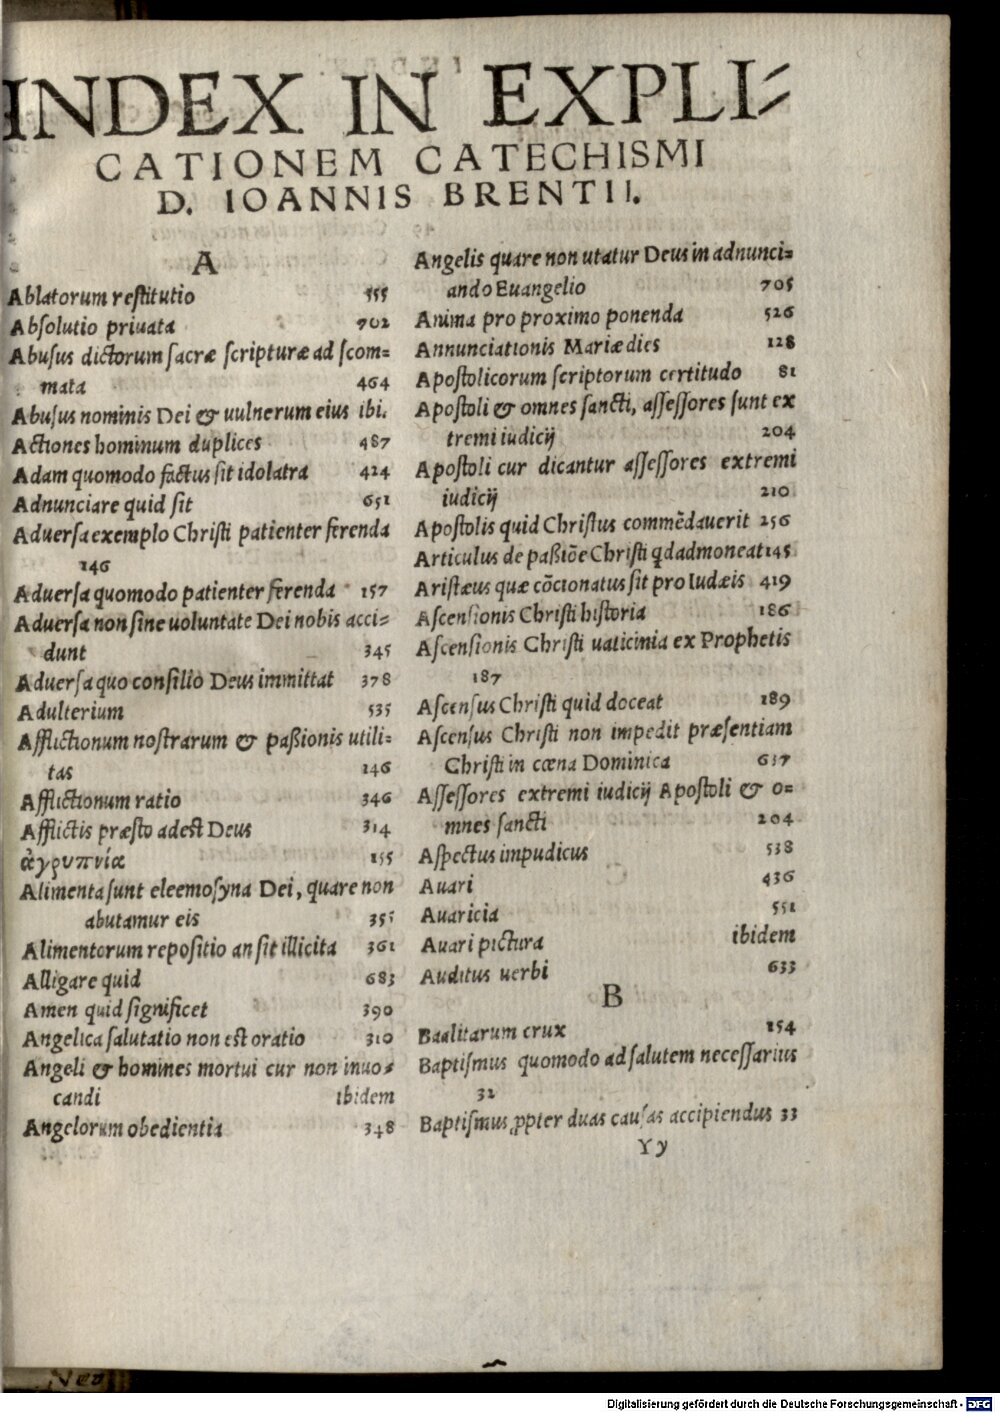 INDEX IN EXPLI-
CATIONEM CATECHISMI
D. IOANNIS BRENTII.
A
Ablatorum restitutio 555
Absolutio priuata 702
Abusus dictorum sacræ scripturæ ad scom=
mata 464
Abusus nominis Dei & uulnerum eius ibi.
Actiones hominum duplices 487
Adam quomodo factus sit idolatra 424
Adnunciare quid sit 651
Aduersa exemplo Christi patienter ferenda
146
Aduersa quomodo patienter ferenda 157
Aduersa non sine uoluntate Dei nobis acci=
dunt 345
Aduersa quo consilio Deus immittat 378
Adulterium 535
Afflictionum nostrarum & paßionis utili=
tas 146
Afflictionum ratio 346
Afflictis præsto adest Deus 314
ἀγρυπνία 155
Alimenta sunt eleemosyna Dei, quare non
abutamur eis 355
Alimentorum repositio an sit illicita 361
Alligare quid 683
Amen quid significet 390
Angelica salutatio non est oratio 310
Angeli & homines mortui cur non inuo=
candi ibidem
Angelorum obedientia 348
Angelis quare non utatur Deus in adnunci=
ando Euangelio 705
Anima pro proximo ponenda 526
Annunciationis Mariæ dies 128
Apostolicorum scriptorum certitudo 81
Apostoli & omnes sancti, assessores sunt ex
tremi iudicij 204
Apostoli cur dicantur assessores extremi
iudicij 210
Apostolis quid Christus commēdauerit 256
Articulus de paßiōe Christi qd admoneat 145
Aristæus quæ cōcionatus sit pro Iudæis 419
Ascensionis Christi historia 186
Ascensionis Christi uaticinia ex Prophetis
187
Ascensus Christi quid doceat 189
Ascensus Christi non impedit præsentiam
Christi in cœna Dominica 637
Assessores extremi iudicij Apostoli & o=
mnes sancti 204
Aspectus impudicus 538
Auari 436
Auaricia 551
Auari pictura ibidem
Auditus uerbi 633
B
Baalitarum crux 154
Baptismus quomodo ad salutem necessarius
32
Baptismus ꝓpter duas causas accipiendus 33
Yy
Digitalisierung gefördert durch die Deutsche Forschungsgemeinschaft - DFG